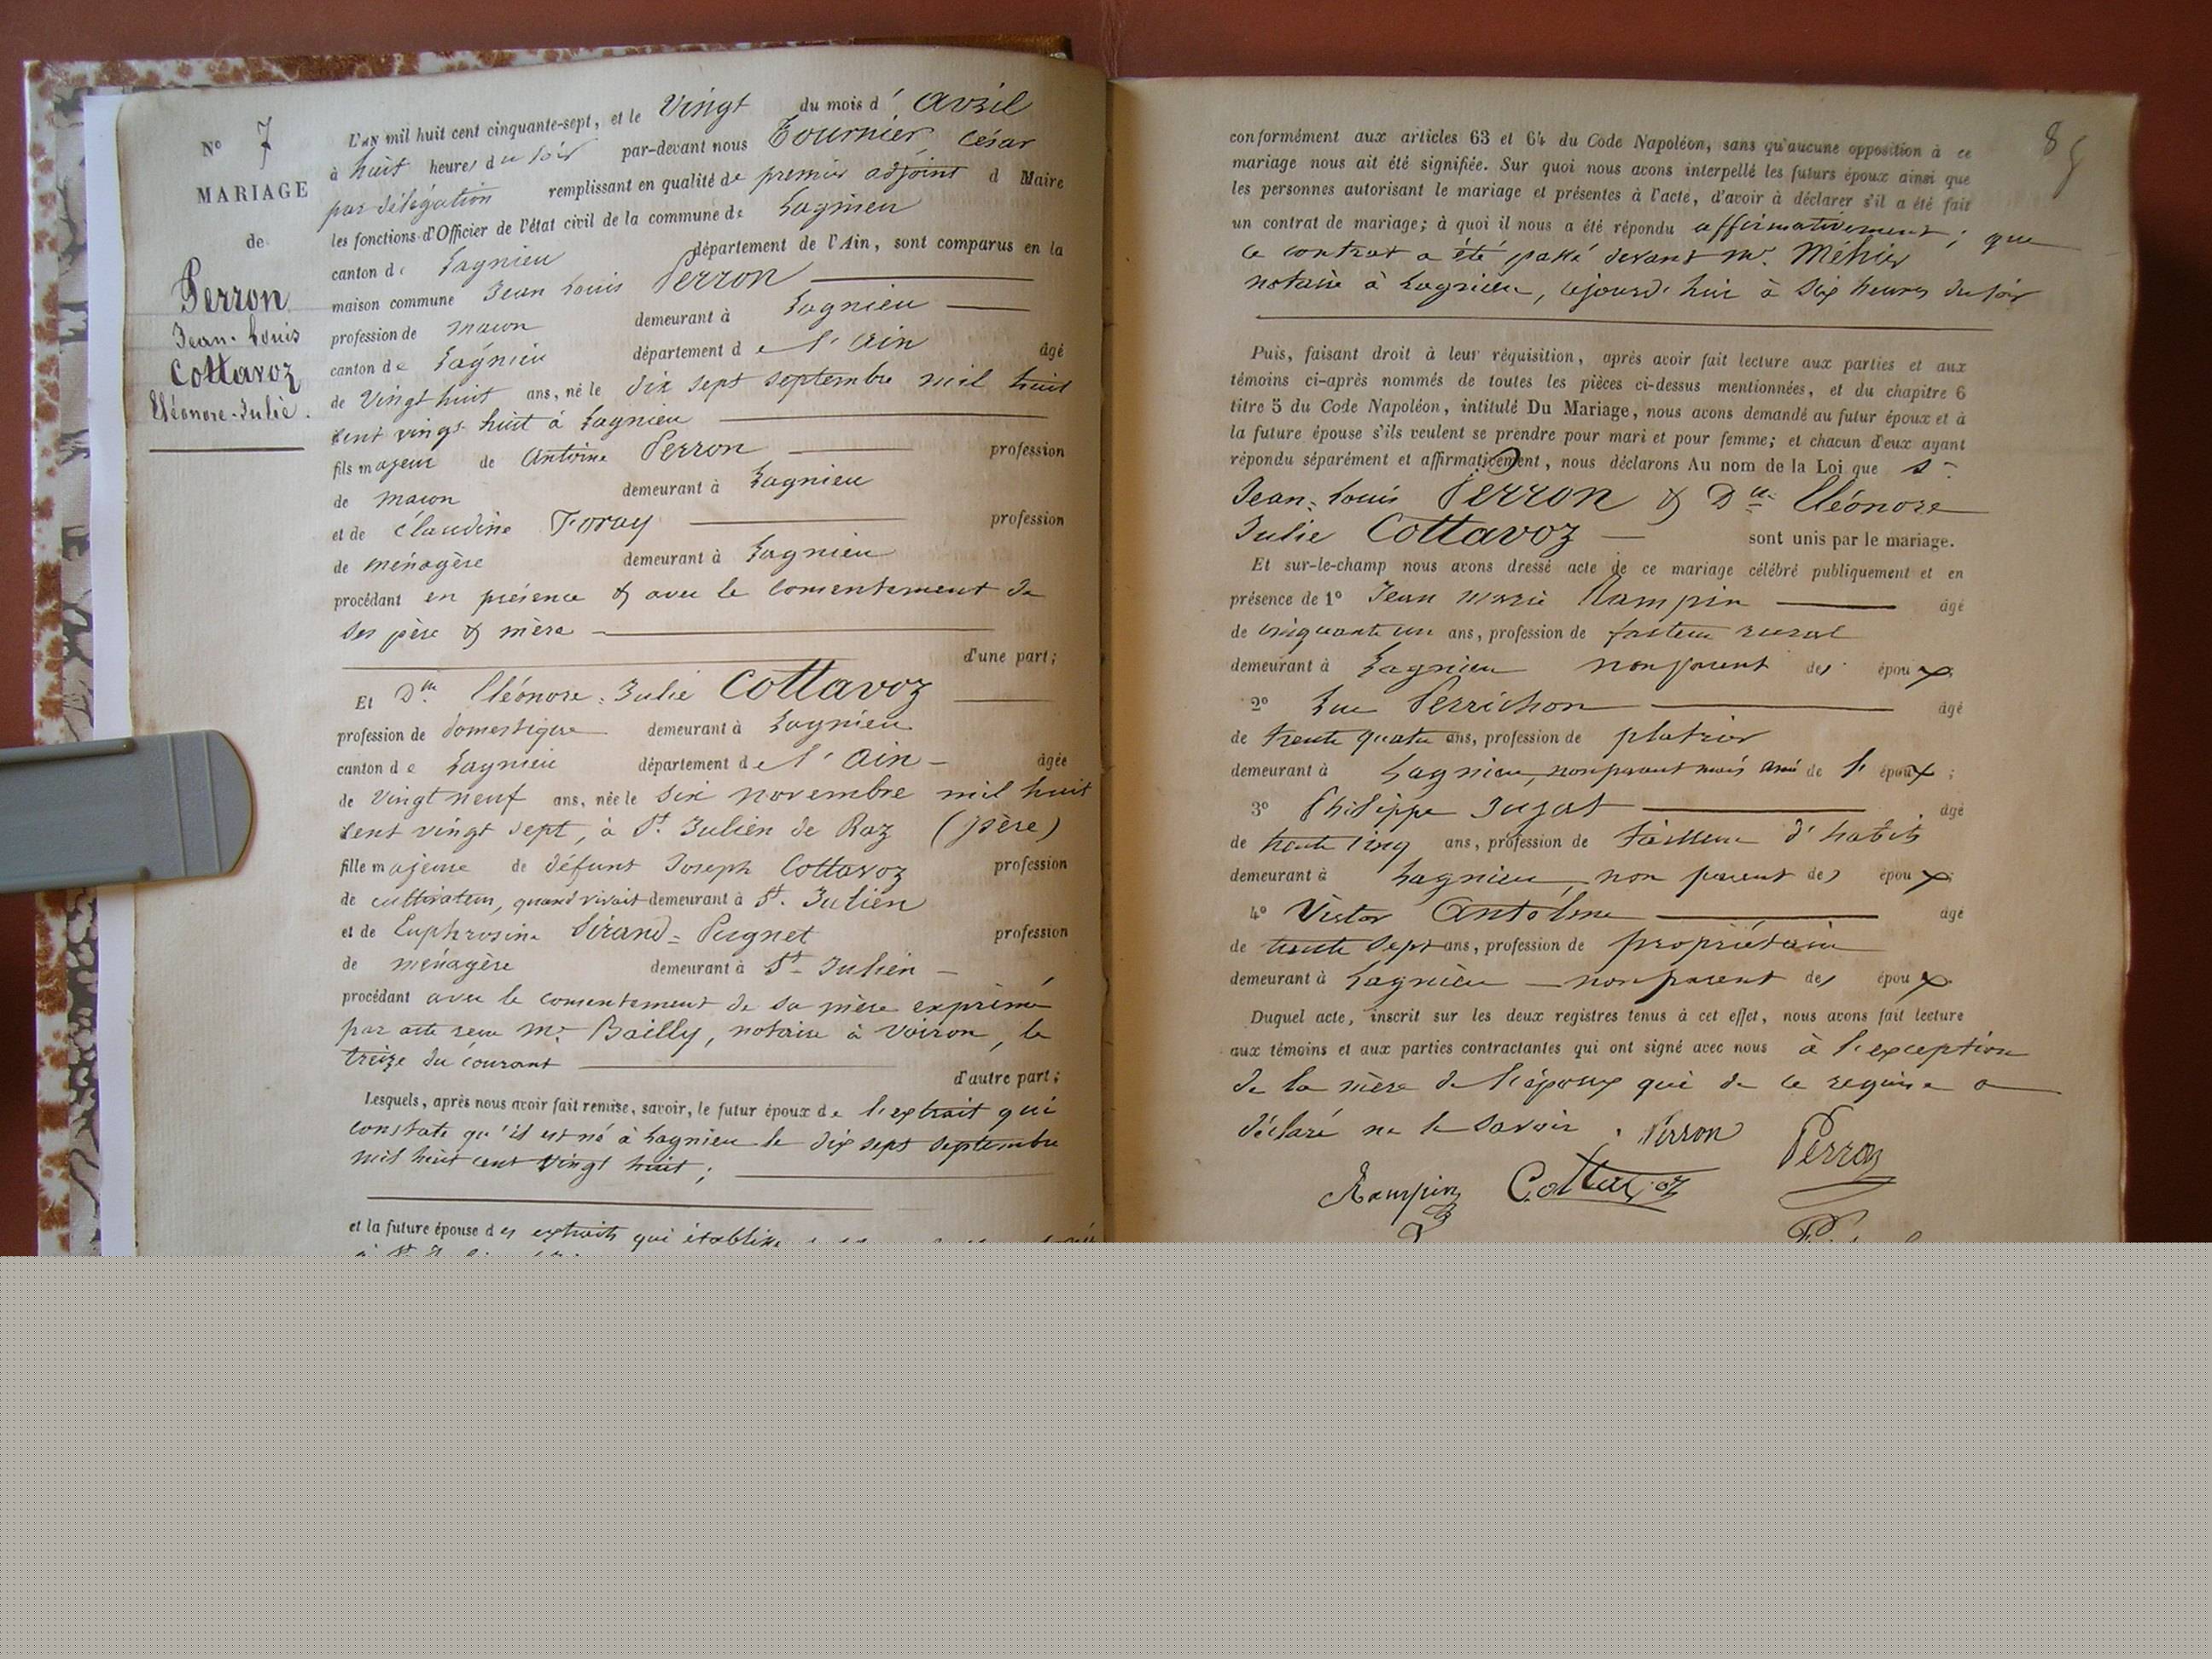 N° 7
MARIAGE
de
Perron
Jean-Louis
Cottavoz
Eléonore-Julie.
L'AN mil huit cent cinquante-sept, et le Vingt du mois d' Avril
à huit heures du soir par-devant nous Tournier, César
par délégation remplissant en qualité de premier adjoint d Maire
les fonctions d'Officier de l'état civil de la commune de Lagnieu
canton de Lagnieu département de l'Ain, sont comparus en la
maison commune Jean Louis Perron
profession de maçon demeurant à Lagnieu
canton de Lagnieu département de l'Ain âgé
de Vingt huit ans, né le dix sept septembre mil huit
cent vingt huit à Lagnieu
fils majeur de Antoine Perron profession
de maçon demeurant à Lagnieu
et de Claudine Foray profession
de ménagère demeurant à Lagnieu
procédant en présence & avec le consentement de
ses père & mère
d'une part;
Et Dlle Eléonore-Julie Cottavoz
profession de domestique demeurant à Lagnieu
canton de Lagnieu département de l'Ain âgée
de Vingt neuf ans, née le six novembre mil huit
cent vingt sept, à St. Julien de Raz (Isère)
fille majeure de défunt Joseph Cottavoz profession
de cultivateur, quand vivait demeurant à St. Julien
et de Euphrosine Sirand-Pugnet profession
de ménagère demeurant à St Julien
procédant avec le consentement de sa mère exprimé
par acte reçu Me. Bailly, notaire à Voiron, le
treize du courant
d'autre part;
Lesquels, après nous avoir fait remise, savoir, le futur époux de l'extrait qui
constate qu'il est né à Lagnieu le dix sept septembre
mil huit cent vingt huit;
et la future épouse des extraits qui
85
conformément aux articles 63 et 64 du Code Napoléon, sans qu'aucune opposition à ce
mariage nous ait été signifiée. Sur quoi nous avons interpellé les futurs époux ainsi que
les personnes autorisant le mariage et présentes à l'acte, d'avoir à déclarer s'il a été fait
un contrat de mariage; à quoi il nous a été répondu affirmativement; que
ce contrat a été passé devant Me. Méhier
notaire à Lagnieu, cejourd'hui à six heures du soir
Puis, faisant droit à leur réquisition, après avoir fait lecture aux parties et aux
témoins ci-après nommés de toutes les pièces ci-dessus mentionnées, et du chapitre 6
titre 5 du Code Napoléon, intitulé Du Mariage, nous avons demandé au futur époux et à
la future épouse s'ils veulent se prendre pour mari et pour femme; et chacun d'eux ayant
répondu séparément et affirmativement, nous déclarons Au nom de la Loi que Sr
Jean-Louis Perron & Dlle Eléonore
Julie Cottavoz sont unis par le mariage.
Et sur-le-champ nous avons dressé acte de ce mariage célébré publiquement et en
présence de 1° Jean Marie Rampin âgé
de cinquante un ans, profession de facteur rural
demeurant à Lagnieu non parent des époux
2° Luc Perrichon âgé
de trente quatre ans, profession de platrier
demeurant à Lagnieu, non parent mais ami de l' époux;
3° Philippe Jujat âgé
de trente cinq ans, profession de tailleur d'habits
demeurant à Lagnieu, non parent des époux;
4° Victor Antoine âgé
de trente sept ans, profession de propriétaire
demeurant à Lagnieu non parent des époux.
Duquel acte, inscrit sur les deux registres tenus à cet effet, nous avons fait lecture
aux témoins et aux parties contractantes qui ont signé avec nous à l'exception
de la mère de l'époux qui de ce requise a
déclaré ne le savoir. Perron Perron
Rampin Cottavoz